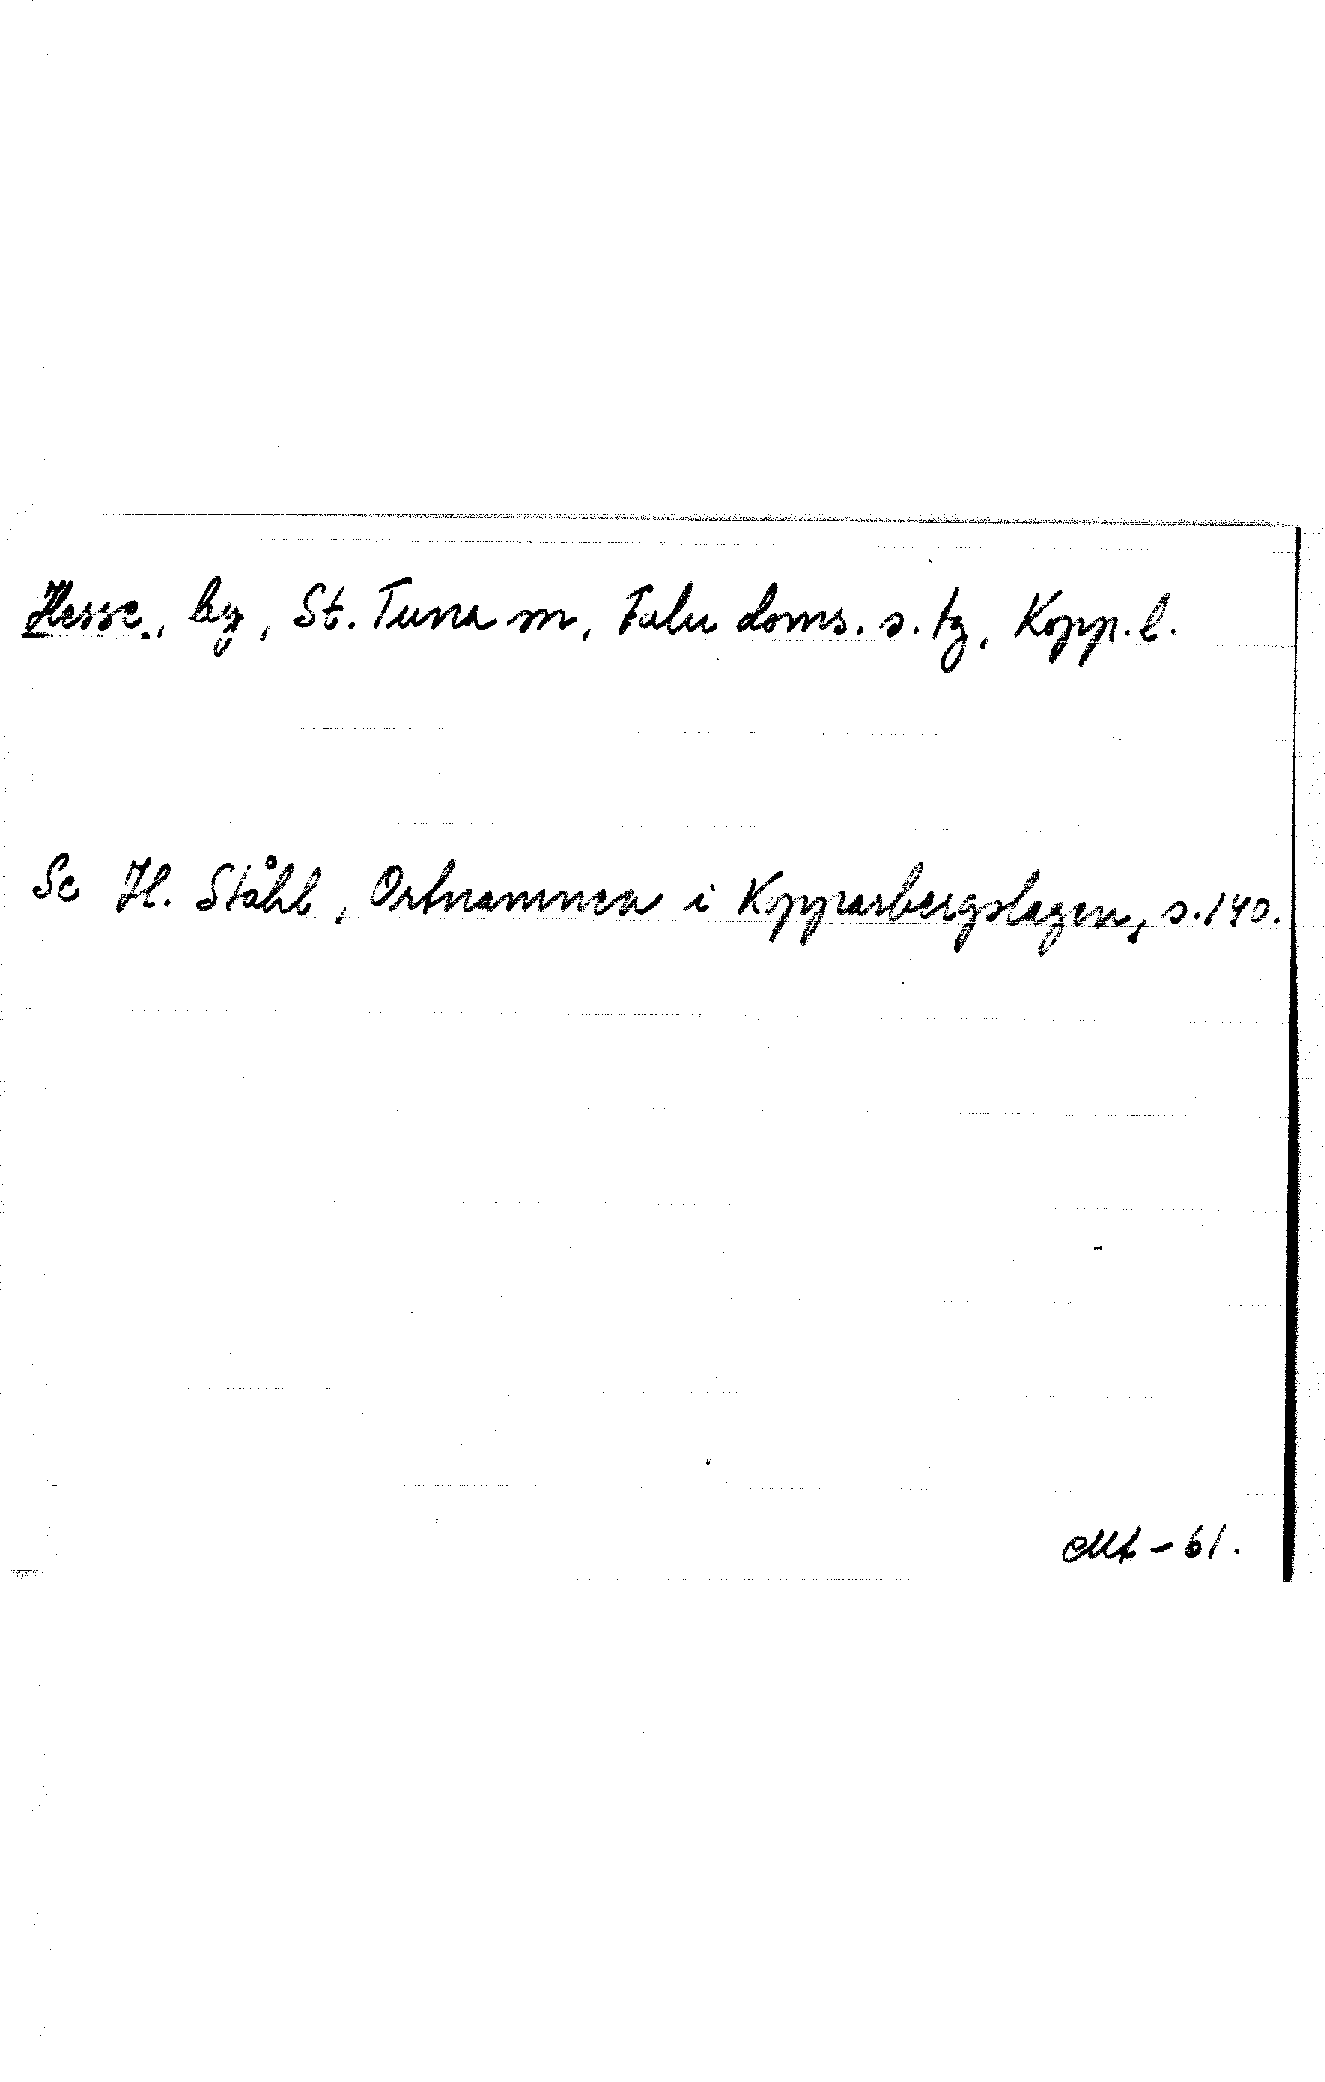 Hesse, by, St. Tuna sn, Falu doms. s. tg, Kopp. l.
Se H. Ståhl, Ortnamnen i Kopparbergslagen, s. 140.
-61.